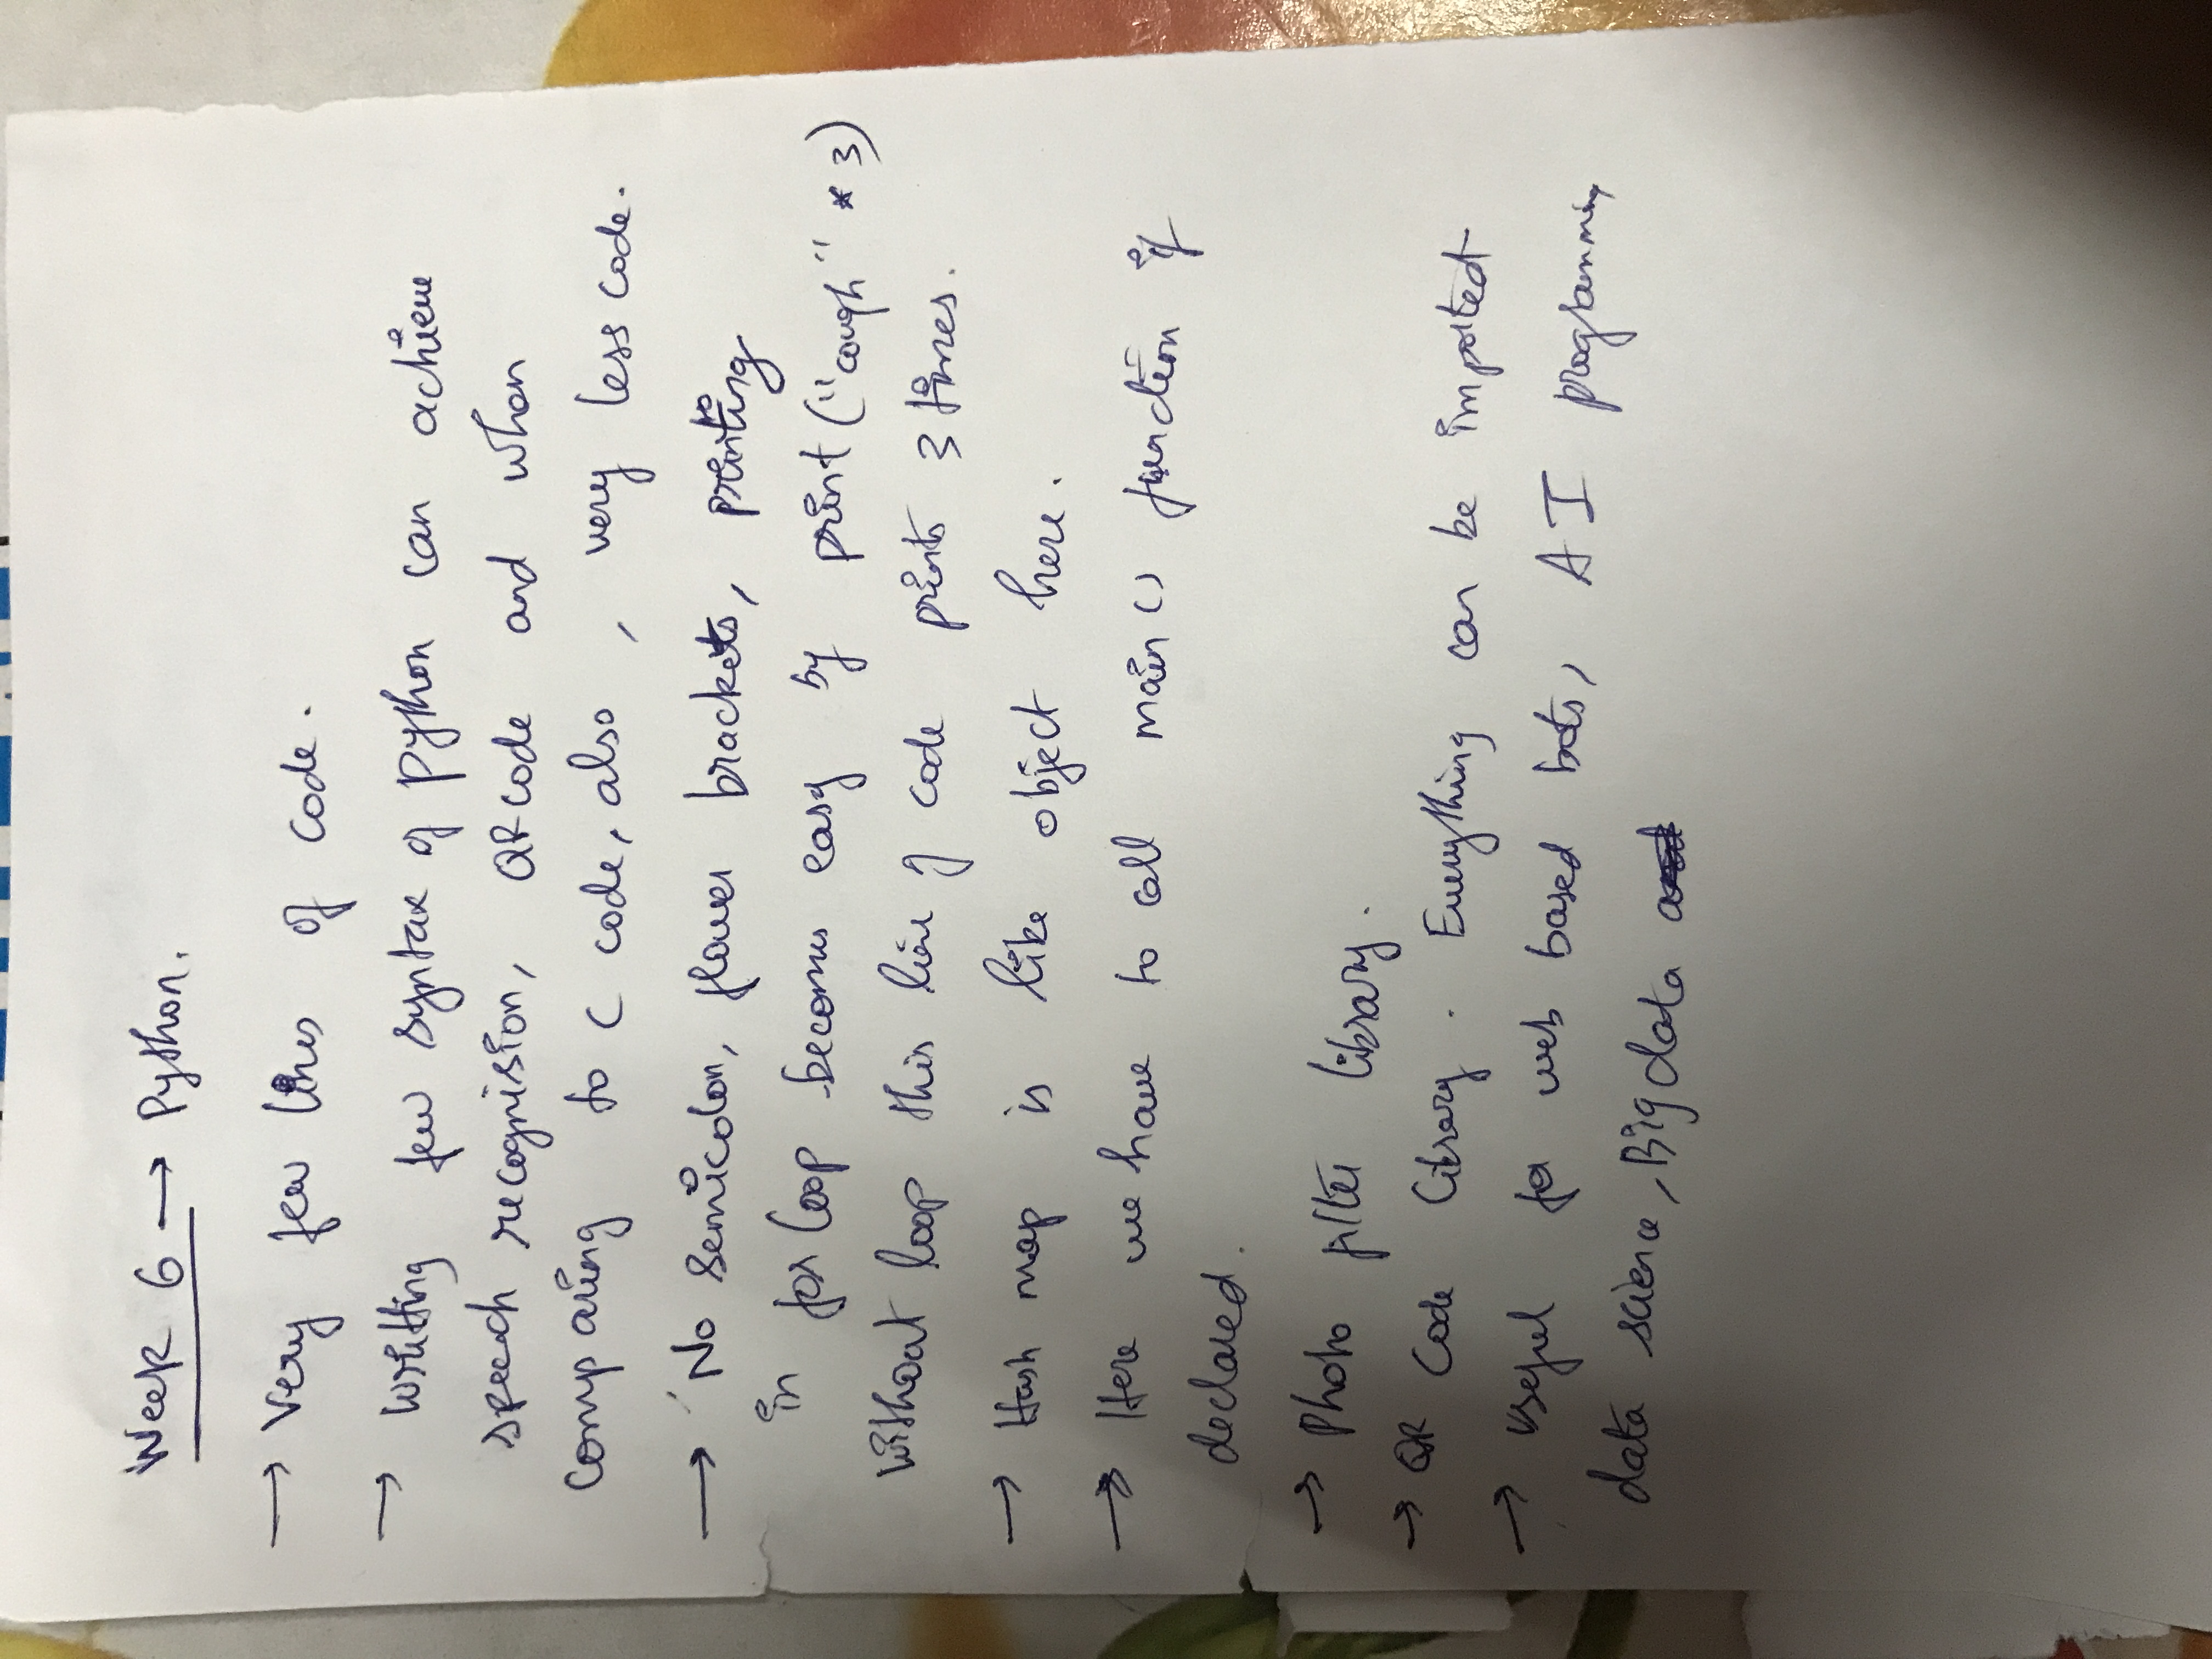 Week 6 → Python.
→ Very few lines of code.
→ Writting few syntax of python can achieve
speech recognision, QR code and when
comparing to C code, also, very less code.
→ No semicolon, flower brackets, printing
in for loop becomes easy by print ("cough" * 3)
without loop this line of code prints 3 times.
→ Hash map is like object here.
→ Here we have to call main() function if
declared.
→ Photo filter library.
→ QR Code library. Everything can be imported
→ useful for web based bots, AI programming
data science, Big data